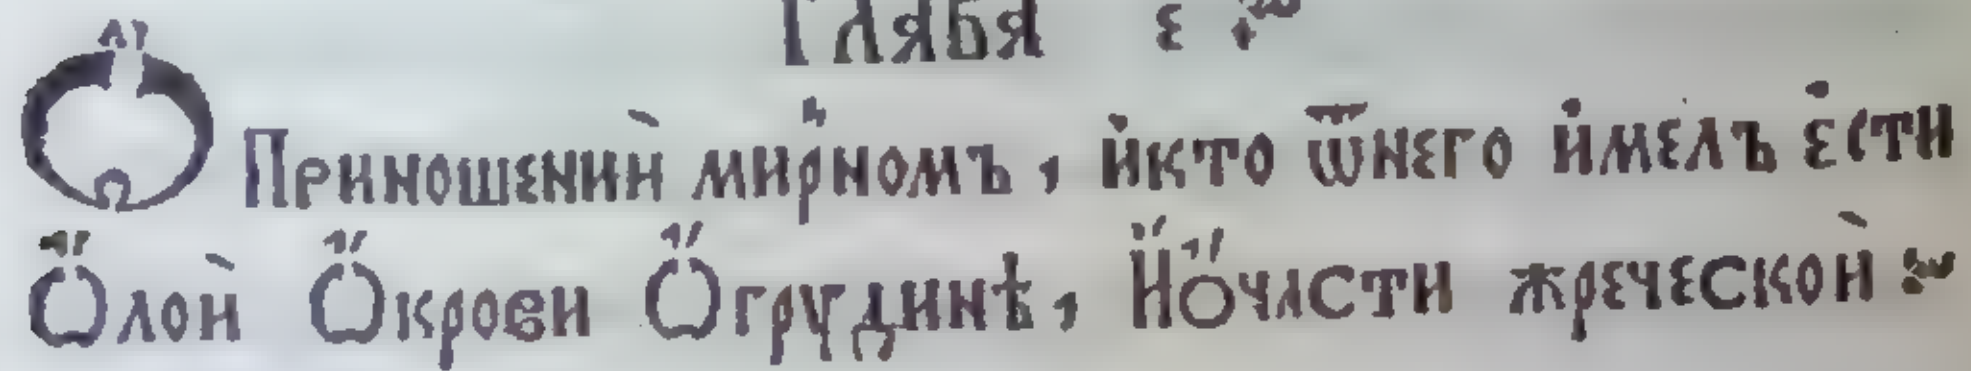 Глава є
Ѽ Приношении̏ мирномъ, и҆кто ѿнего и҆мелъ є҆сти
Ѽлои̏ Ѽкрови Ѽгрудинѣ, Иѽчасти жреческои̏